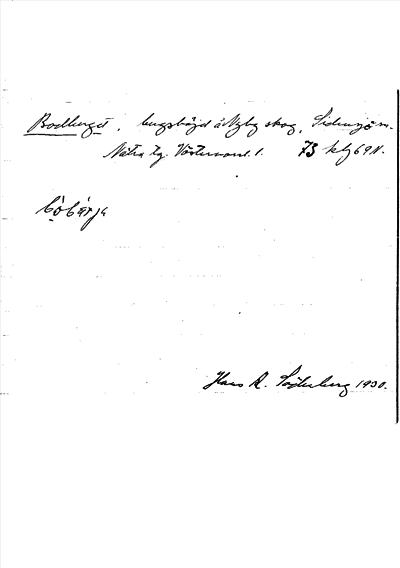 Bodberget, bergshöjd å Nyby skog, Sidensjö sn.
Nätra tg. Västernorrl. l. 73 kbl 69 N.
bo̤bärja
Hans R. Söderberg 1930.